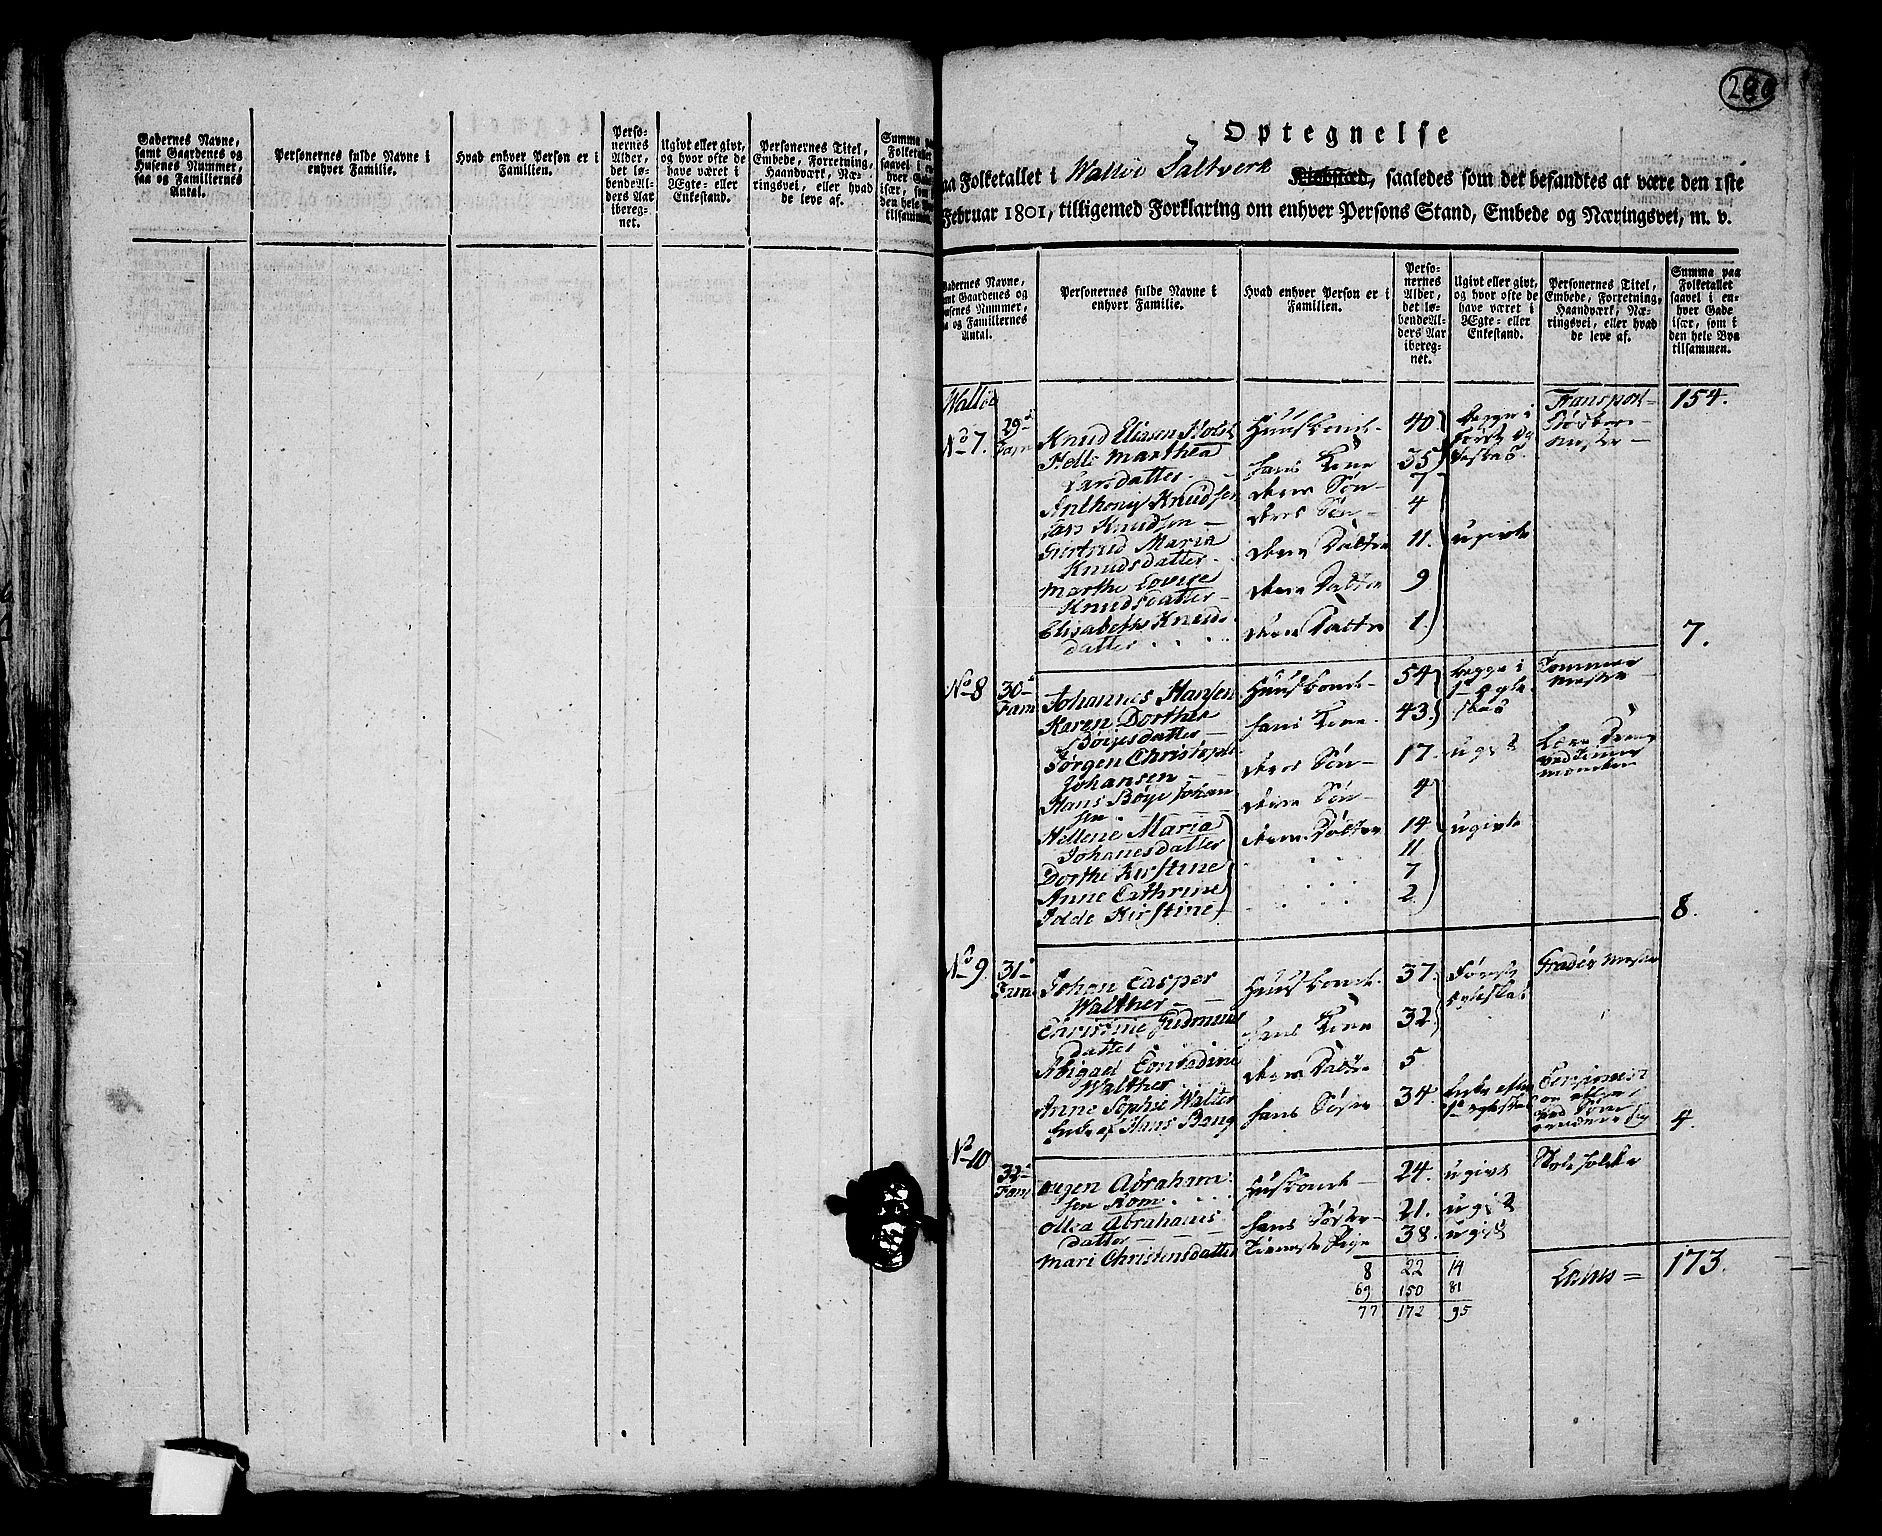 Gadernes Navne,
samt Gaardenes og
Husenes Nummer,
saa og Familiernes
Antal.
Personernes fulde Navne i
enhver Familie.
Hvad enhver Person er i
Familien.
Perso-
nernes
Alder,
det lø-
bendeAl-
ders Aar
iberег-
net.
Ugivt eller givt,
og hvor ofte de
have været i
Ægte- eller
Enkestand.
Personernes Titel,
Embede, Forretning,
Haandværk, Næ-
ringsvei, eller hvad
de leve af.
Summa paa
Folketallet
saavel i en-
hver Gade
især, som
den hele By
tilsammen.
Optegnelse
paa Folketallet i Walløe Saltverk Kiøbstæd, saaledes som det befandtes at være den 1ste
Februar 1801, tilligemed Forklaring om enhver Persons Stand, Embede og Næringsvei, m. v.
Gadernes Navne,
samt Gaardenes og
Husenes Nummer,
saa og Familiernes
Antal.
Personernes fulde Navne i
enhver Familie.
Hvad enhver Person er i
Familien.
Perso-
nernes
Alder,
det lø-
bendeAl-
ders Aar
ibereg-
net.
Ugivt eller givt,
og hvor ofte de
have været i
Ægte- eller
Enkestand.
Personernes Titel,
Embede, Forretning,
Haandværk, Næ-
ringsvei, eller hvad
de leve af.
Summa paa
Folketallet
saavel i en-
hver Gade
især, som i
den hele By
tilsammen.
Walløe Transport 154.
No 7. 29de Fam Knud Elissen Holst Huusbonde 40 begge i første
Helle Marthea hans Kone 35
Larsdatter
Anthonij Knudsen deres Søn 7
Lars Knudsen deres Søn 4
Giertrud Maria deres Datter 11. ugivte
Knudsdatter
Marthe Lovise deres Datter 9
Knudsdatter
Elisabeth Knuds deres Datter 1
datter 7.
No 8 30te Fam Johannes Hansen Huusbonde 54 begge i Tømmer
Karen Dorthea hans Kone 43 mester
Børjesdatter
Jørgen Christoph deres Søn 17. ugift
Johansen
Hans Børje Johan deres Søn 4
sen
Hellene Maria deres Døttre 14 ugivte
Johanesdatter 11
Dorthe Kirstine 7
Anne Cathrine 2
Idde Kirstine 8.
No 9. 31te Fam Johan Casper Huusbonde 37 første Gradeer Mester
Walther
Christine Gudmund hans Kone 32
datter
Abigael Conradine deres Datter 5
Walther
Anne Sophie Walter hans Søster 34
Enke af Hans Bang 4
No 10 32te Fam Abraham Huusbonde 24. ugivt
sen Rom
Ollea Abrahams hans Søster 21. ugift
datter
Mari Christensdatter Tieneste Pige 38. ugift
8 22 14 Latus = 173.
69 150 81
77 172 95